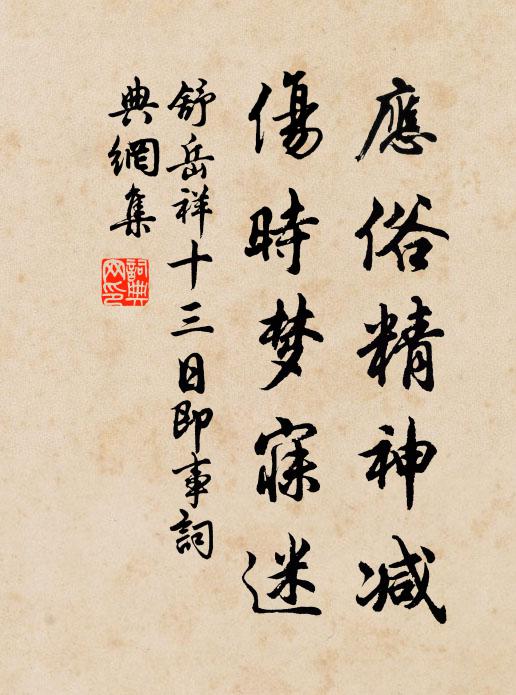 應俗精神减
傷時梦寐迷
舒岳祥十三日即事詞
典網集
詞典
网印